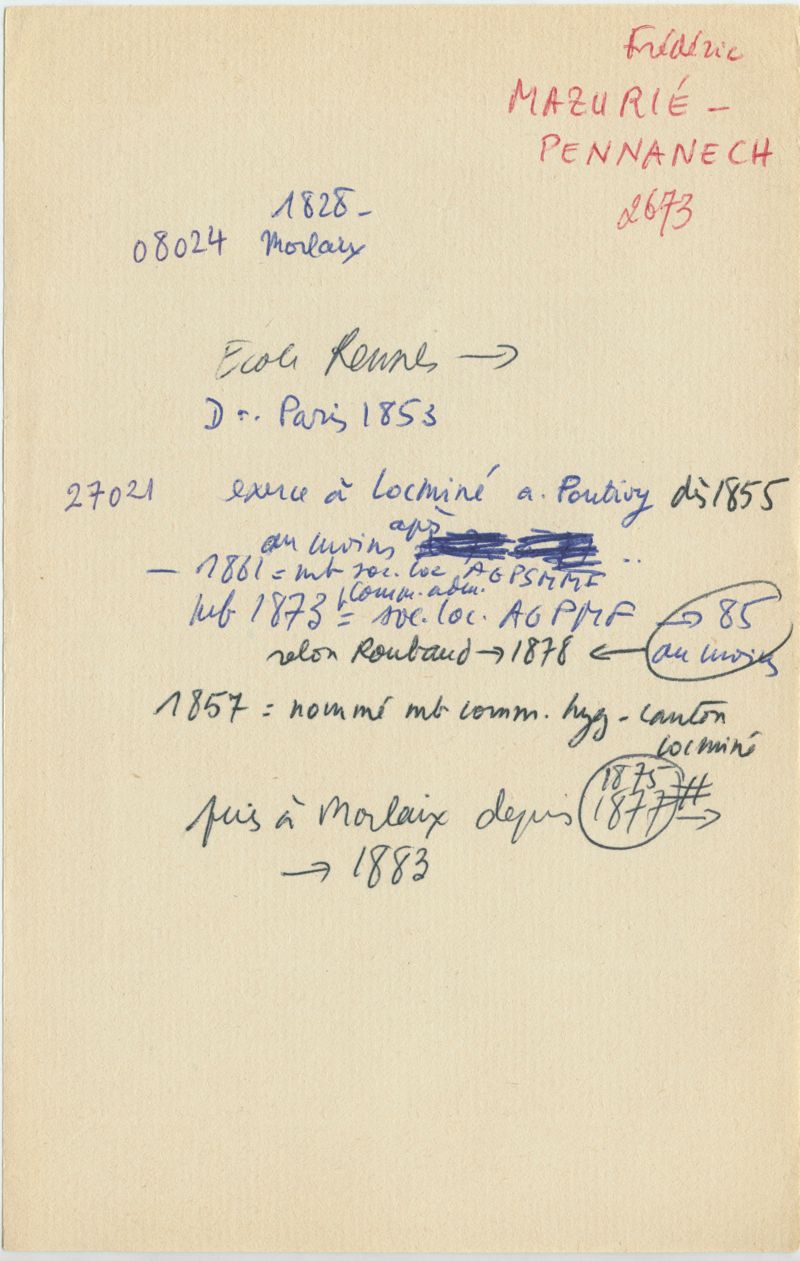 Frédéric
MAZURIÉ -
PENNANECH
2673
1828 -
08024 Morlaix
Ecole Rennes →
D.. Paris 1853
27021 exerce à Locminé a. Pontivy dès 1855
au moins après
- 1861 = mb soc. loc. AGPSMMF ..
comm. adm.
mb 1873 = soc. loc. AGPMF → 85
selon Roubaud → 1878 ← au moins
1857 = nommé mb comm. hyg - canton
Locminé
1875 #
puis à Morlaix depuis 1877 →
→ 1883